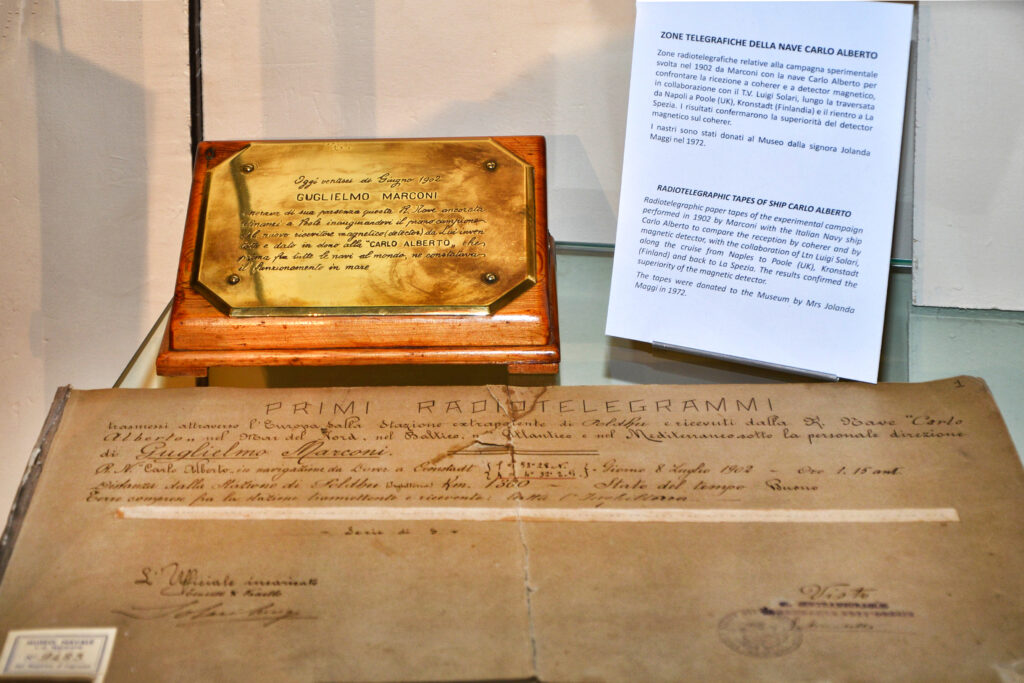 Oggi ventisei di Giugno 1902
GUGLIELMO MARCONI
onorava di sua presenza questa R. Nave ancorata
dinanzi a Poole inaugurandovi il primo campione
del nuovo ricevitore magnetico (detector) da Lui inven
tato e dato in dono alla "CARLO ALBERTO„ che,
prima fra tutte le navi al mondo, ne constatava
il funzionamento in mare
ZONE TELEGRAFICHE DELLA NAVE CARLO ALBERTO
Zone radiotelegrafiche relative alla campagna sperimentale
svolta nel 1902 da Marconi con la nave Carlo Alberto per
confrontare la ricezione a coherer e a detector magnetico,
in collaborazione con il T.V. Luigi Solari, lungo la traversata
da Napoli a Poole (UK), Kronstadt (Finlandia) e il rientro a La
Spezia. I risultati confermarono la superiorità del detector
magnetico sul coherer.
I nastri sono stati donati al Museo dalla signora Jolanda
Maggi nel 1972.
RADIOTELEGRAPHIC TAPES OF SHIP CARLO ALBERTO
Radiotelegraphic paper tapes of the experimental campaign
performed in 1902 by Marconi with the Italian Navy ship
Carlo Alberto to compare the reception by coherer and by
magnetic detector, with the collaboration of Ltn Luigi Solari,
along the cruise from Naples to Poole (UK), Kronstadt
(Finland) and back to La Spezia. The results confirmed the
superiority of the magnetic detector.
The tapes were donated to the Museum by Mrs Jolanda
Maggi in 1972.
1
PRIMI RADIOTELEGRAMMI
trasmessi attraverso l'Europa dalla Stazione extrapotente di Poldhu e ricevuti dalla R. Nave "Carlo
Alberto„ nel Mar del Nord, nel Baltico, nell'Atlantico e nel Mediterraneo sotto la personale direzione
di Guglielmo Marconi.
R. N. Carlo Alberto, in navigazione da Dover a Cronstadt - Giorno 8 Luglio 1902 - Ore 1.15 ant.
Distanza dalla Stazione di Poldhu (Inghilterra) Km. - Stato del tempo Buono
Terre comprese fra la stazione trasmettente e ricevente: tutta l'Inghilterra
- Serie di S -
L'Ufficiale incaricato
Solari Luigi
Visto
MUSEO NAVALE